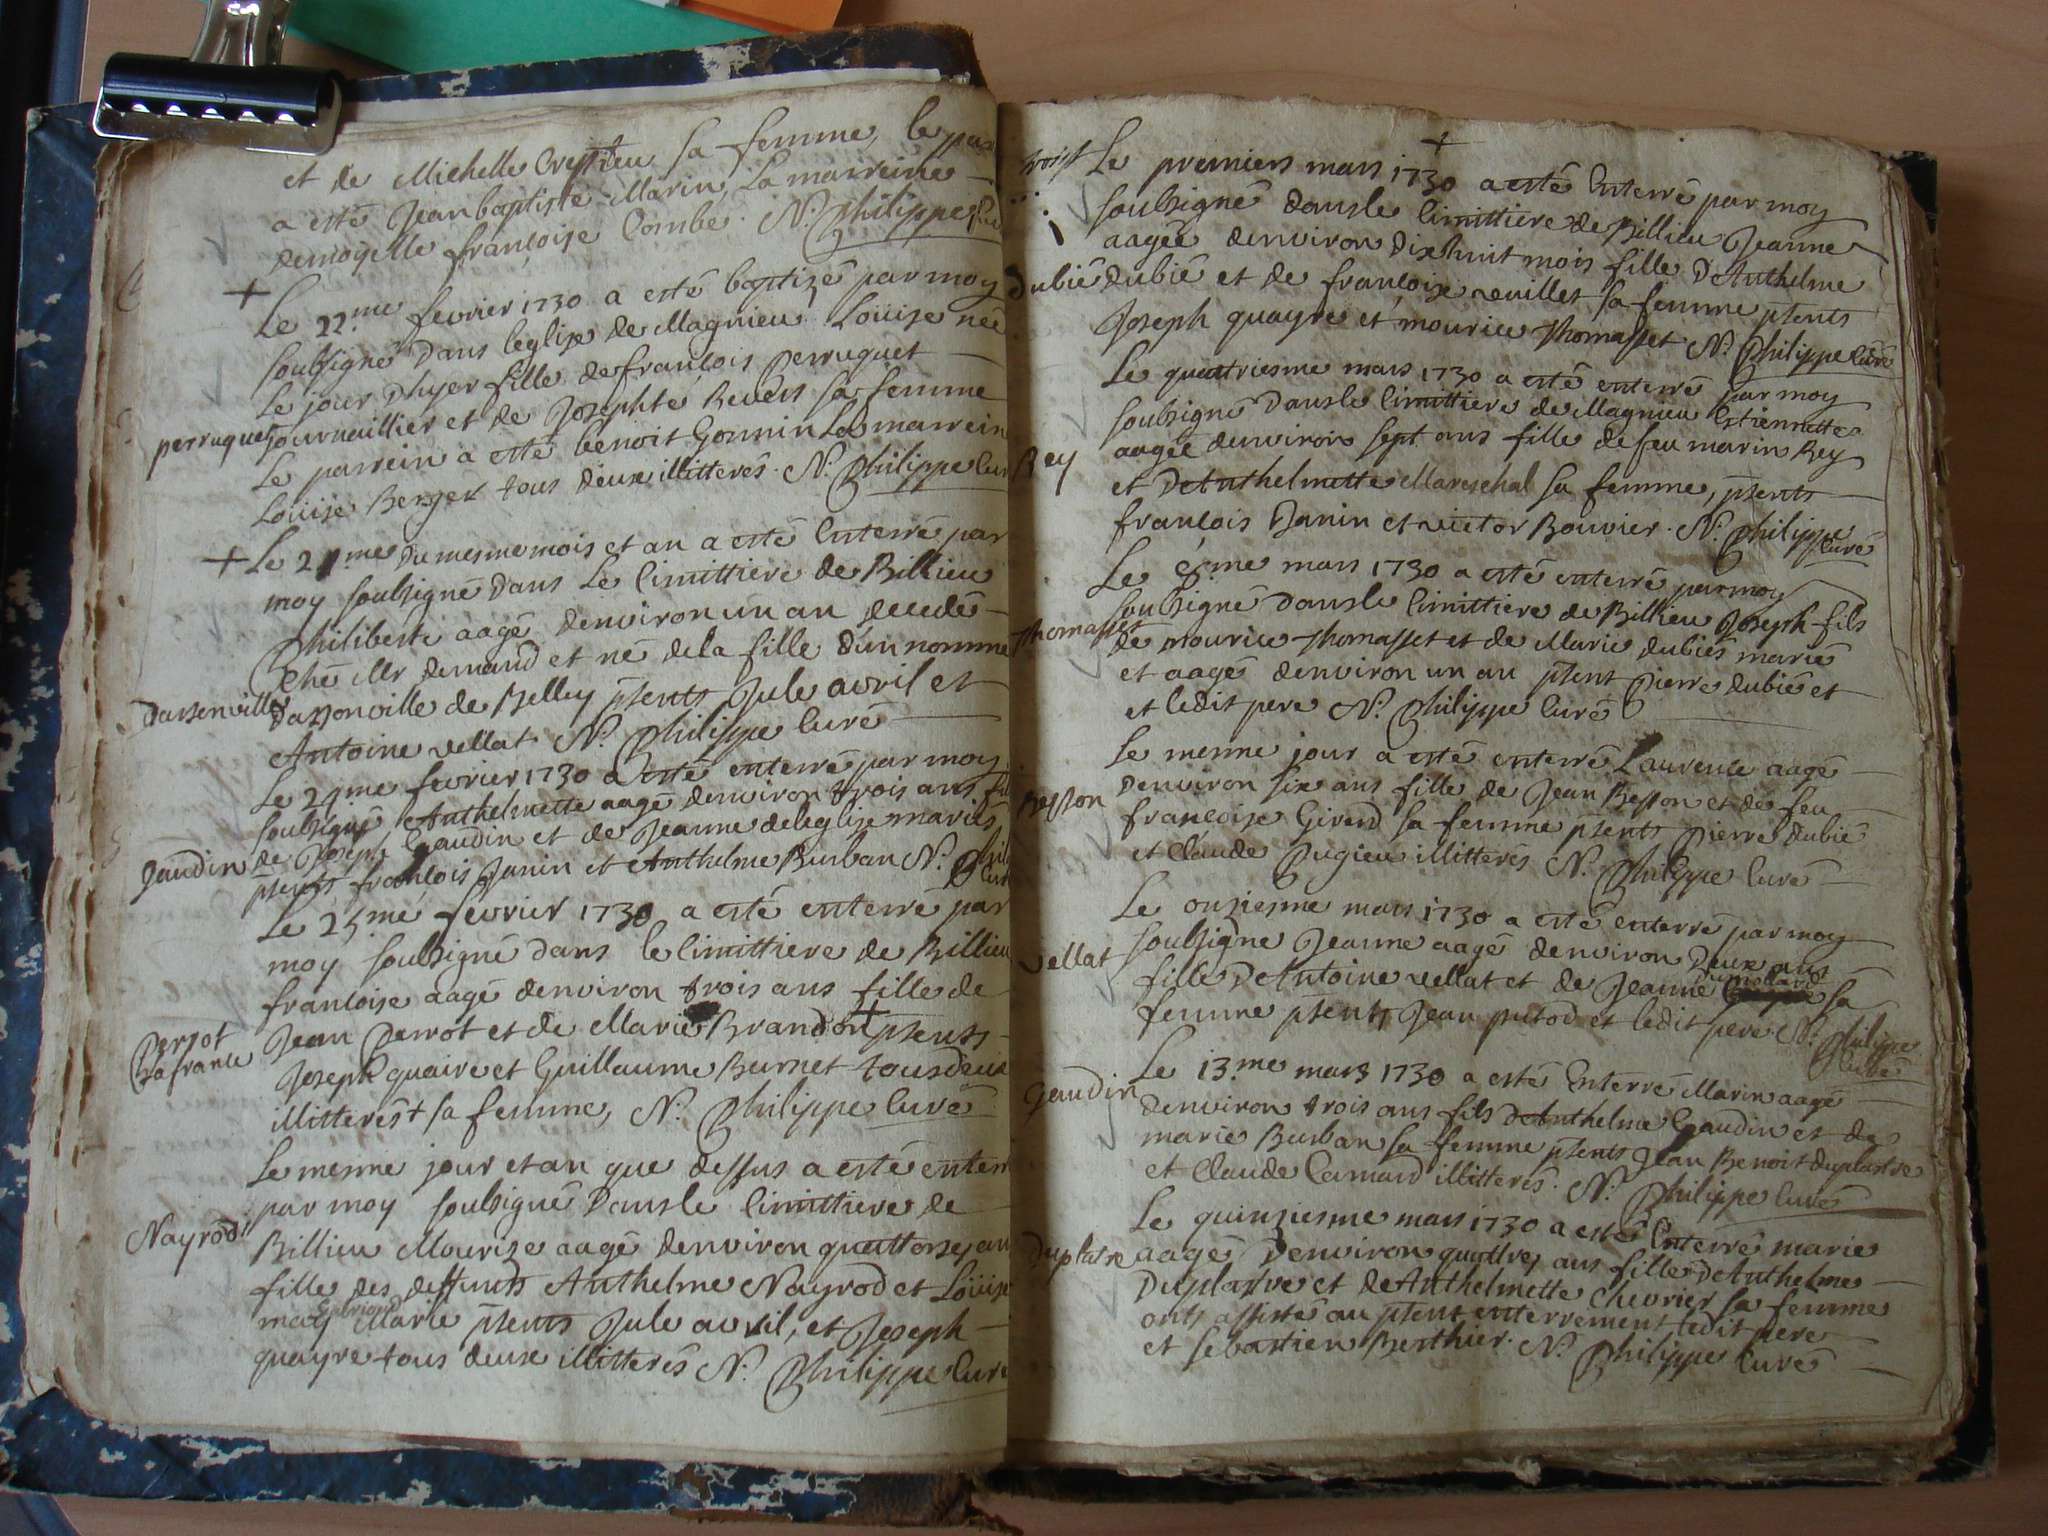 et de Michelle Crestieu sa femme, le
a esté Jean baptiste Marin La marreine
demoyselle françoise Combe. N. Philippe
Le 22.me fevrier 1730 a esté baptizé par moy
soubsigné dans leglize de Magnieu Loüize née
Le jour d'hyer fille de françois perruquet
perruquet
journaillier et de Josephte Revers sa femme
Le parrein a esté benoit Gonnin La marrein
Loüize Berger tous deux illitterés. N. Philippe Curé
Le 2 .me du mesme mois et an a esté Enterré par
moy soubsigné dans Le Cimittiere de Billieu
Philiberte aagé denviron un an decedé
ché Mr demand et né dela fille dun nommé
Darsonville
Dassonville de Belley p̄sents Jule avril et
Antoine vellat N. Philippe Curé
Le 24.me fevrier 1730 a esté enterré par moy
soubsigné Anthelmette aagé denviron trois ans fil
Gaudin
de Joseph Gaudin et de Jeanne deleglise mariés
p̄sents françois Janin et Anthelme Burban N. Phili
Curé
Le 25.me fevrier 1730 a esté enterré par
moy soubsigné dans le Cimittiere de Billieu
francoise aagé denviron trois ans fille de
Perrot
Lafrance
Jean Perrot et de Marie Brandon + p̄sents
Joseph quaire et Guillaume Burnet tous deux
illitterés + sa femme, N. Philippe Curé
Le mesme jour et an que dessus a esté enterré
par moy soubsigné Dans le Cimittiere de
Nayrod
Billieu Mourize aagé denviron quattorze an
fille des deffunts Anthelme Nayrod et Loüize
Marie p̄sents Jule avril, et Joseph
quayre tous deux illitterés N. Philippe Curé
Le premiers mars 1730 a esté Enterré par moy
soubsigné dans le Cimittiere de Billieu Jeanne
aagée denviron dixhuit mois fille D'Anthelme
Dubié
dubié et de françoise veuillet sa femme p̄sents
Joseph quayre et mourice Thomasset N. Philippe Curé
Le quattriesme mars 1730 a esté enterré par moy
soubsigné Dans le Cimittiere de Magnieu Estiennette
Rey
aagée denviron sept ans fille de feu marin Rey
et D'Anthelmette Mareschal sa femme, p̄sents
françois Janin et victor Bouvier. N. Philippe
Curé
Le 6.me mars 1730 a esté enterré par moy
soubsigné Dans le Cimittiere de Billieu Joseph fils
Thomasset
de mourice Thomasset et de Marie dubiés mariés
et aagé denviron un an p̄sent Pierre dubié et
et ledit pere N. Philippe Curé
Le mesme jour a esté enterré Laurence aagé
Besson
Denviron six ans fille de Jean Besson et de feu
françoise Girerd sa femme p̄sents Pierre dubié
et Claude Pugieu illitterés N. Philippe Curé
Le onziesme mars 1730 a esté enterré par moy
vellat
soubsigné Jeanne aagé denviron Deux ans
fille D'Antoine vellat et de Jeanne Dumolard sa
femme p̄sents Jean putod et ledit pere N. Philippe
Curé
Le 13.me mars 1730 a esté Enterré Marin aagé
Gaudin
denviron trois ans fils d'Anthelme Gaudin et de
marie Burban sa femme p̄sents Jean Benoit duplastre
et Claude Camard illitterés. N. Philippe Curé
Le quinziesme mars 1730 a esté Enterré marie
Duplatre
aagé Denviron quattre ans fille D'Anthelme
Duplastre et de Anthelmette Chevrier sa femme
onts assisté au p̄sent enterrement ledit pere
et sebastien Berthier. N. Philippe Curé